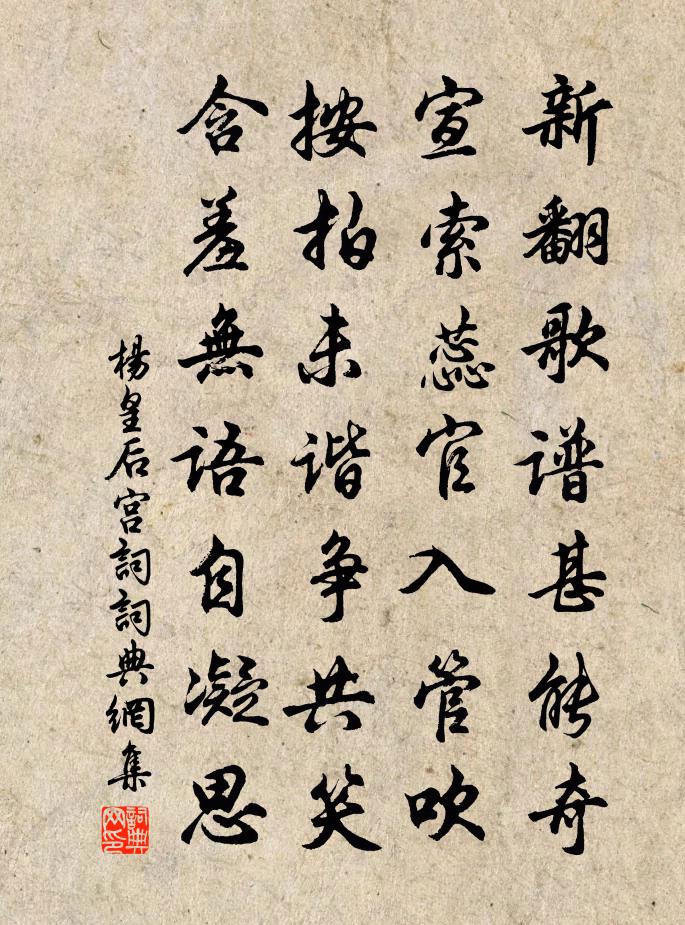 新翻歌谱甚能奇
宣索蕊官入管吹
按拍未谐争共笑
含羞無语自凝思
楊皇后宫詞詞典網集
詞典网印